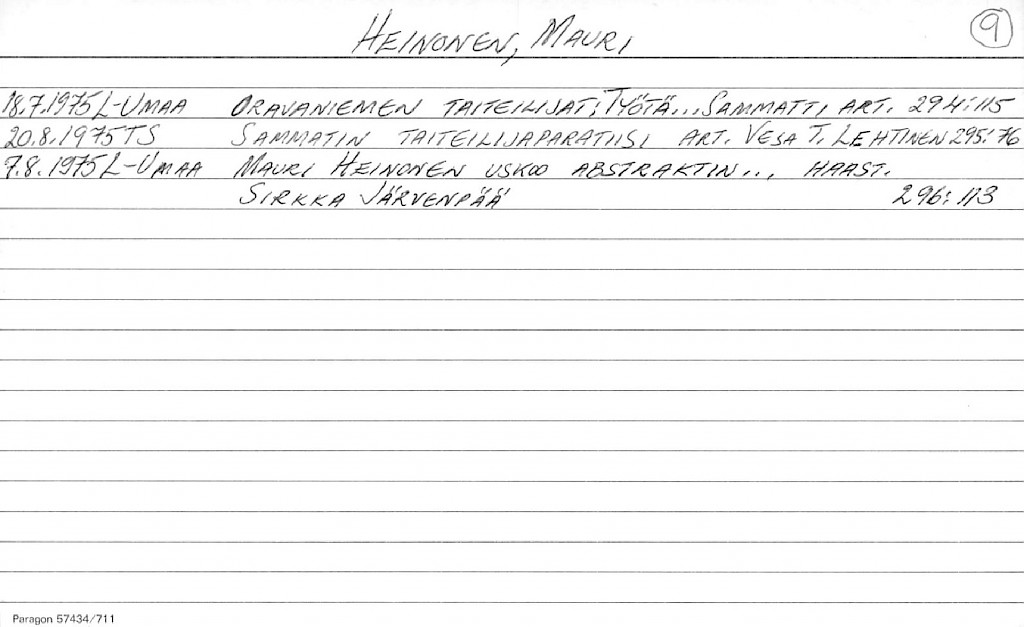 HEINONEN, MAURI 9
18.7.1975 L-UMAA ORAVANIEMEN TAITEILIJAT: TYÖTÄ... SAMMATTI, ART. 294:115
20.8.1975 TS SAMMATIN TAITEILIJAPARATIISI ART. VESA T. LEHTINEN 295:76
7.8.1975 L-UMAA MAURI HEINONEN USKOO ABSTRAKTIN... HAAST.
SIRKKA JÄRVENPÄÄ 296:113
Paragon 57434/711